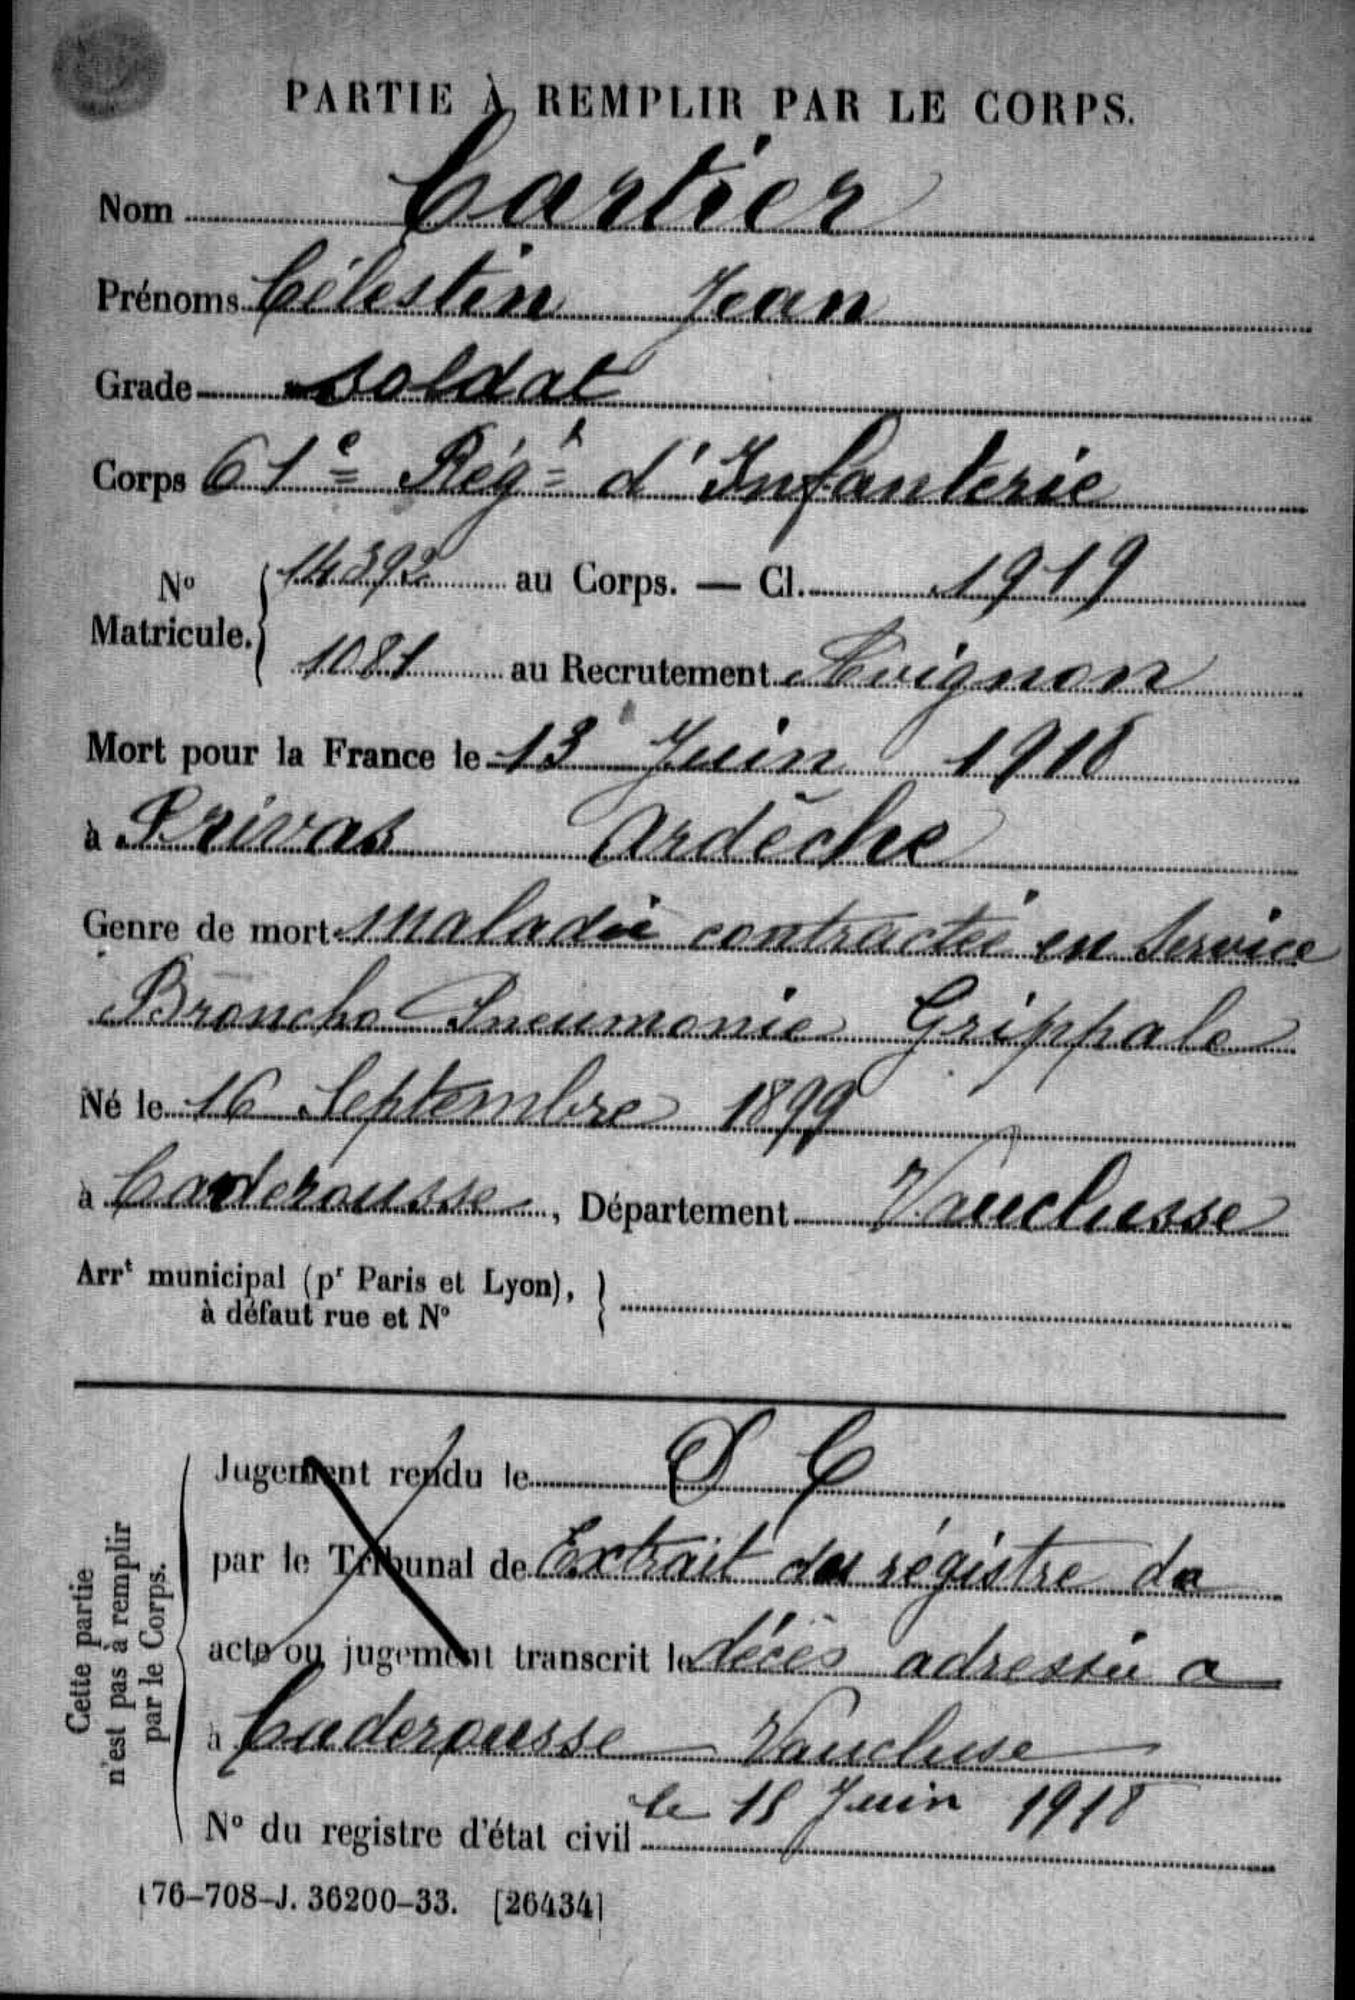 PARTIE À REMPLIR PAR LE CORPS.
Nom Cartier
Prénoms Célestin Jean
Grade soldat
Corps 61e Régt d'Infanterie
No Matricule. 14392 au Corps. — Cl. 1919
1081 au Recrutement Avignon
Mort pour la France le 13 Juin 1918
à Privas Ardèche
Genre de mort maladie contractée en Service
Broncho Pneumonie Grippale
Né le 16 Septembre 1899
à Caderousse, Département Vauclusse
Arrt municipal (pr Paris et Lyon),
à défaut rue et No
Cette partie
n'est pas à remplir
par le Corps.
Jugement rendu le D C
par le Tribunal de Extrait du régistre de
acte ou jugement transcrit le décès adressée a
à Caderousse Vaucluse
le 15 Juin 1918
No du registre d'état civil
176-708-J. 36200-33. [26434]